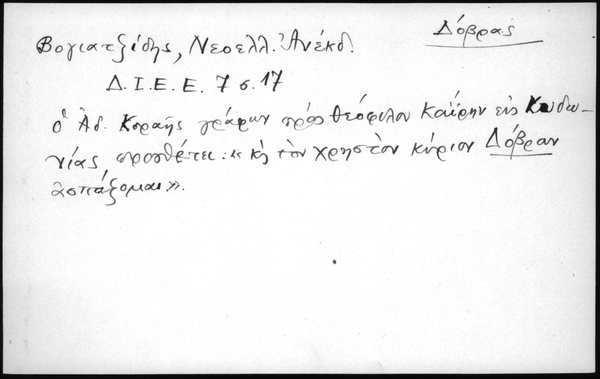 Δόβρας
Βογιατζίδης, Νεοελλ. Ἀνέκδ.
Δ.Ι.Ε.Ε. 7 σ. 17
ὁ Ἀδ. Κοραῆς γράφων πρὸς Θεόφιλον Καΐρην εἰς Κυδω-
νίας προσθέτει: «κὶ τὸν χρηστὸν κύριον Δόβραν
ἀσπάζομαι».